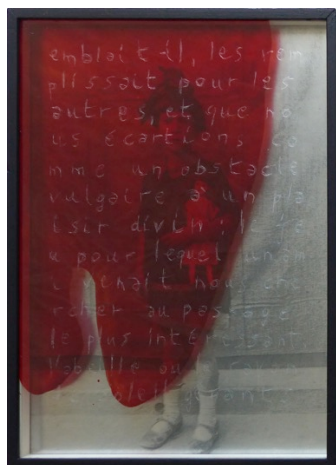 emblait-il, les rem
plissait pour les
autres, et que no
us écartions, co
mme un obstacle
vulgaire à un pla
isir divin : le je
u pour lequel un am
i venait nous che
rcher au passage
le plus intéressant,
l'abeille ou
soleil gênants